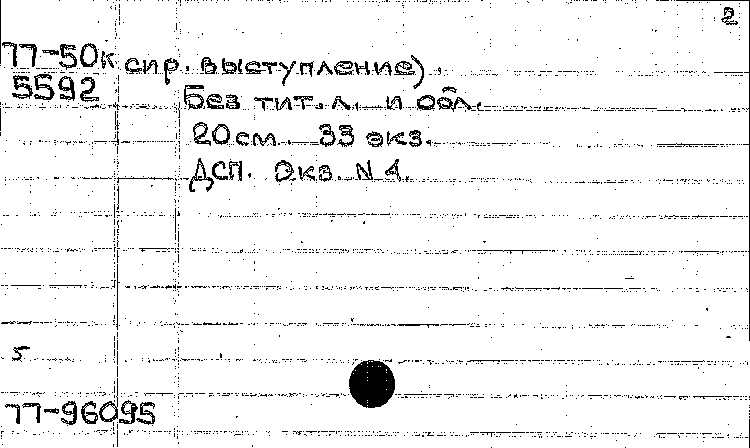 2
77-50к сир. выступление).
5592
Без тит. л. и обл.
20 см. 33 экз.
ДСП. Экз. N 4.
5
77-96095